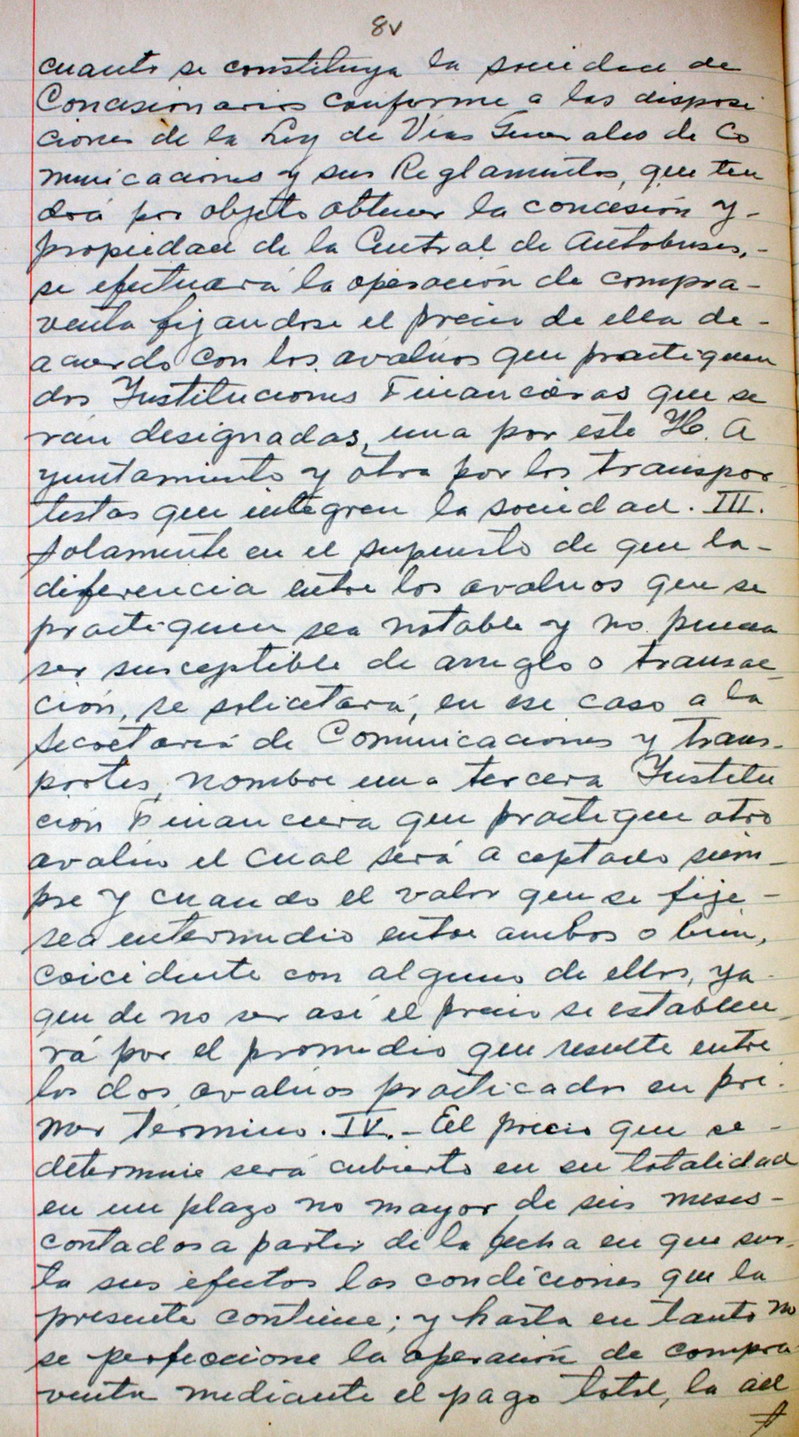 8v
cuanto se constituya la sociedad de
Concesionarios conforme a las disposi
ciones de la Ley de Vias Generales de Co
municaciones y sus Reglamentos, que ten
drá por objeto obtener la concesión y-
propiedad de la Central de Autobuses,-
se efectuará la operación de compra-
venta fijandose el precio de ella de-
acuerdo con los avalúos que practiquen
dos Instituciones Financieras que se
ran designadas, una por este H. A
yuntamiento y otra por los transpor-
tistas que integren la sociedad. III.
Solamente en el supuesto de que la-
diferencia entre los avaluos que se
practiquen sea notable y no pueda
ser susceptible de arreglo o transac-
ción, se solicitará, en ese caso a la
Secretaría de Comunicaciones y Trans-
portes, nombre una tercera Institu
ción Financiera que practique otro
avalúo el cual será aceptado siem-
pre y cuando el valor que se fije-
sea intermedio entre ambos o bien,
coicidente con alguno de ellos, ya-
que de no ser así el precio se establece-
rá por el promedio que resulte entre
los dos avalúos practicados en pri-
mer término. IV.- El precio que se-
determine será cubierto en su totalidad
en un plazo no mayor de seis meses-
contados a partir de la fecha en que sur-
ta sus efectos las condiciones que la
presente contiene; y hasta en tanto no
se perfeccione la operación de compra-
venta mediante el pago total, la ad